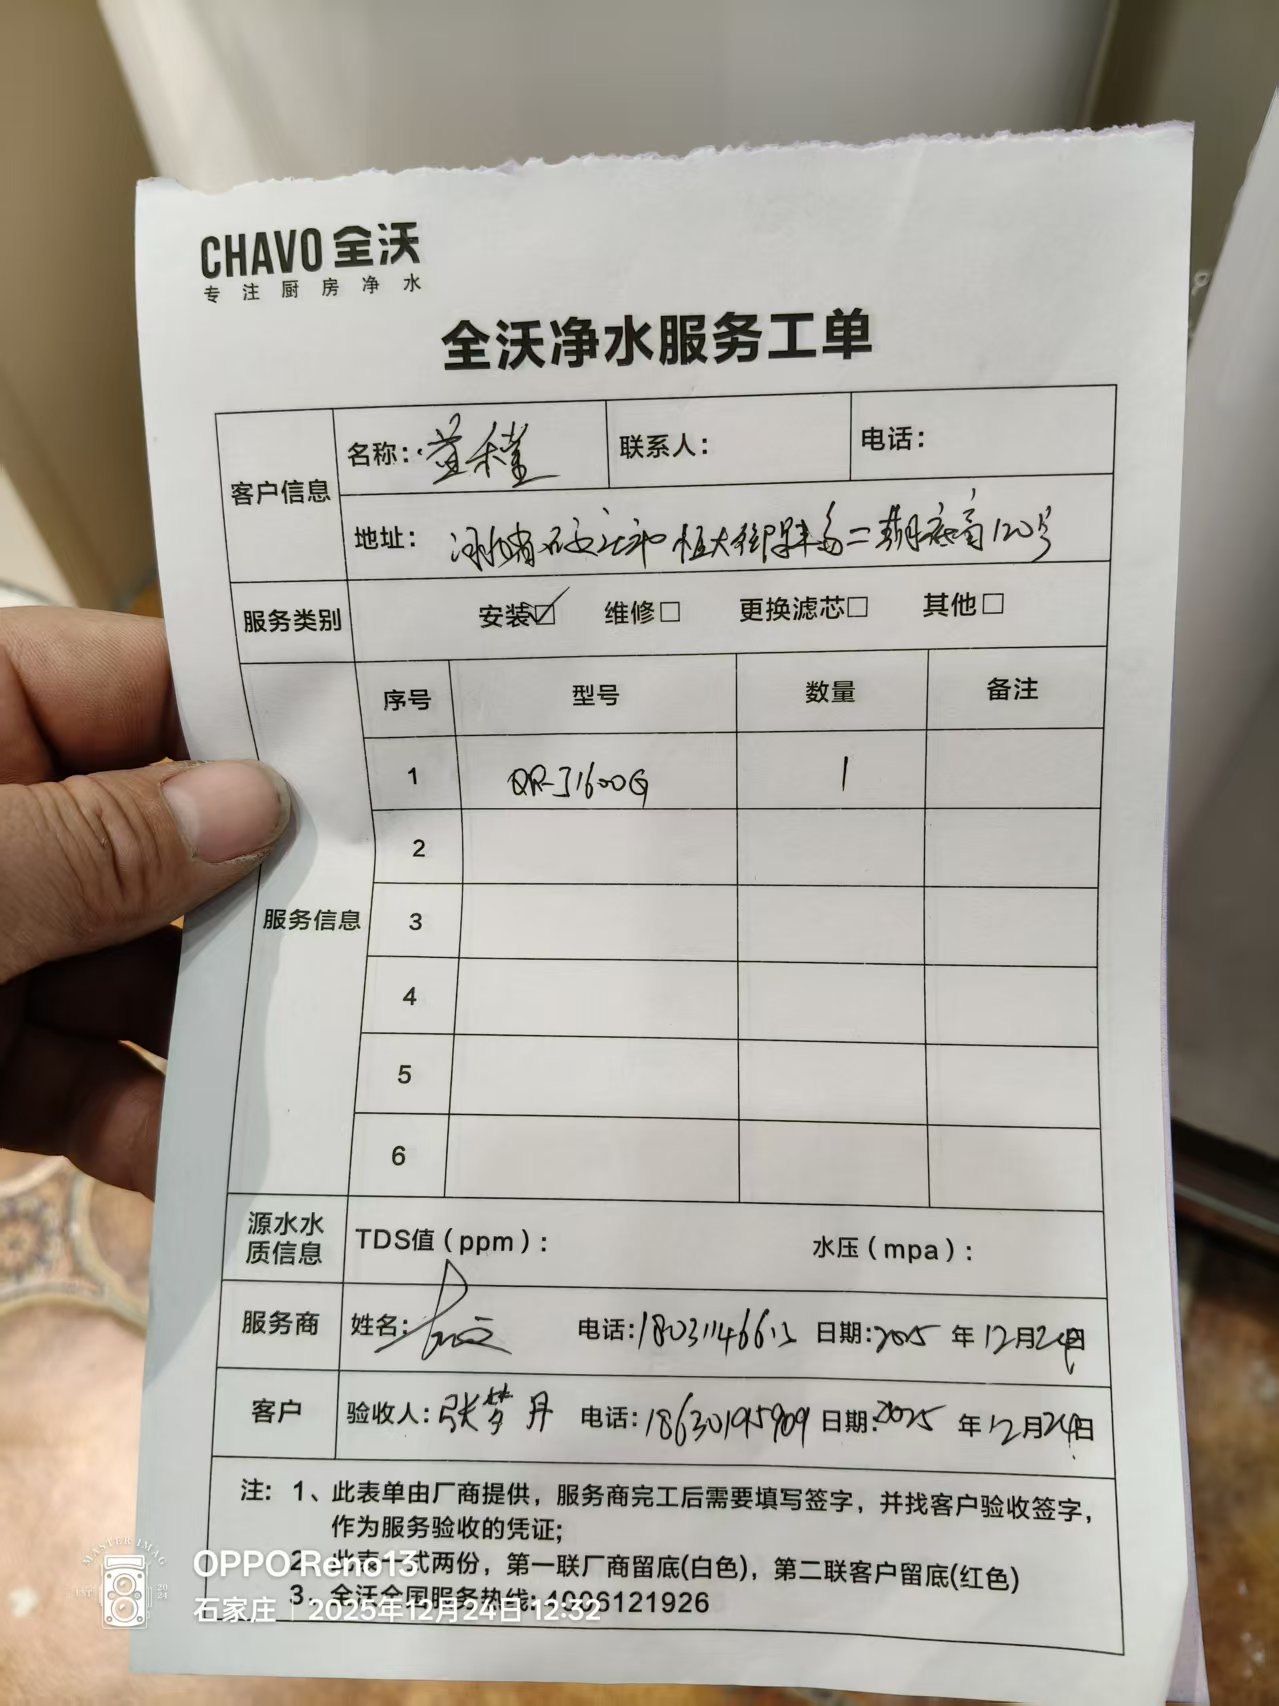 CHAVO 全沃
专注厨房净水
全沃净水服务工单
客户信息 名称: 联系人: 电话:
地址: 河北省石家庄市恒大御景半岛二期底商120号
服务类别 安装☑ 维修□ 更换滤芯□ 其他□
服务信息 序号 型号 数量 备注
1 QR-J1600G 1
2
3
4
5
6
源水水质信息 TDS值(ppm): 水压(mpa):
服务商 姓名: 电话: 日期:2025年12月24日
客户 验收人:张梦丹 电话:18630195909 日期:2025年12月24日
注: 1、此表单由厂商提供,服务商完工后需要填写签字,并找客户验收签字,
作为服务验收的凭证;
2、此表一式两份,第一联厂商留底(白色),第二联客户留底(红色)
3、全沃全国服务热线:4006121926
MASTER IMAG
OPPO Reno13
石家庄 | 2025年12月24日 12:32